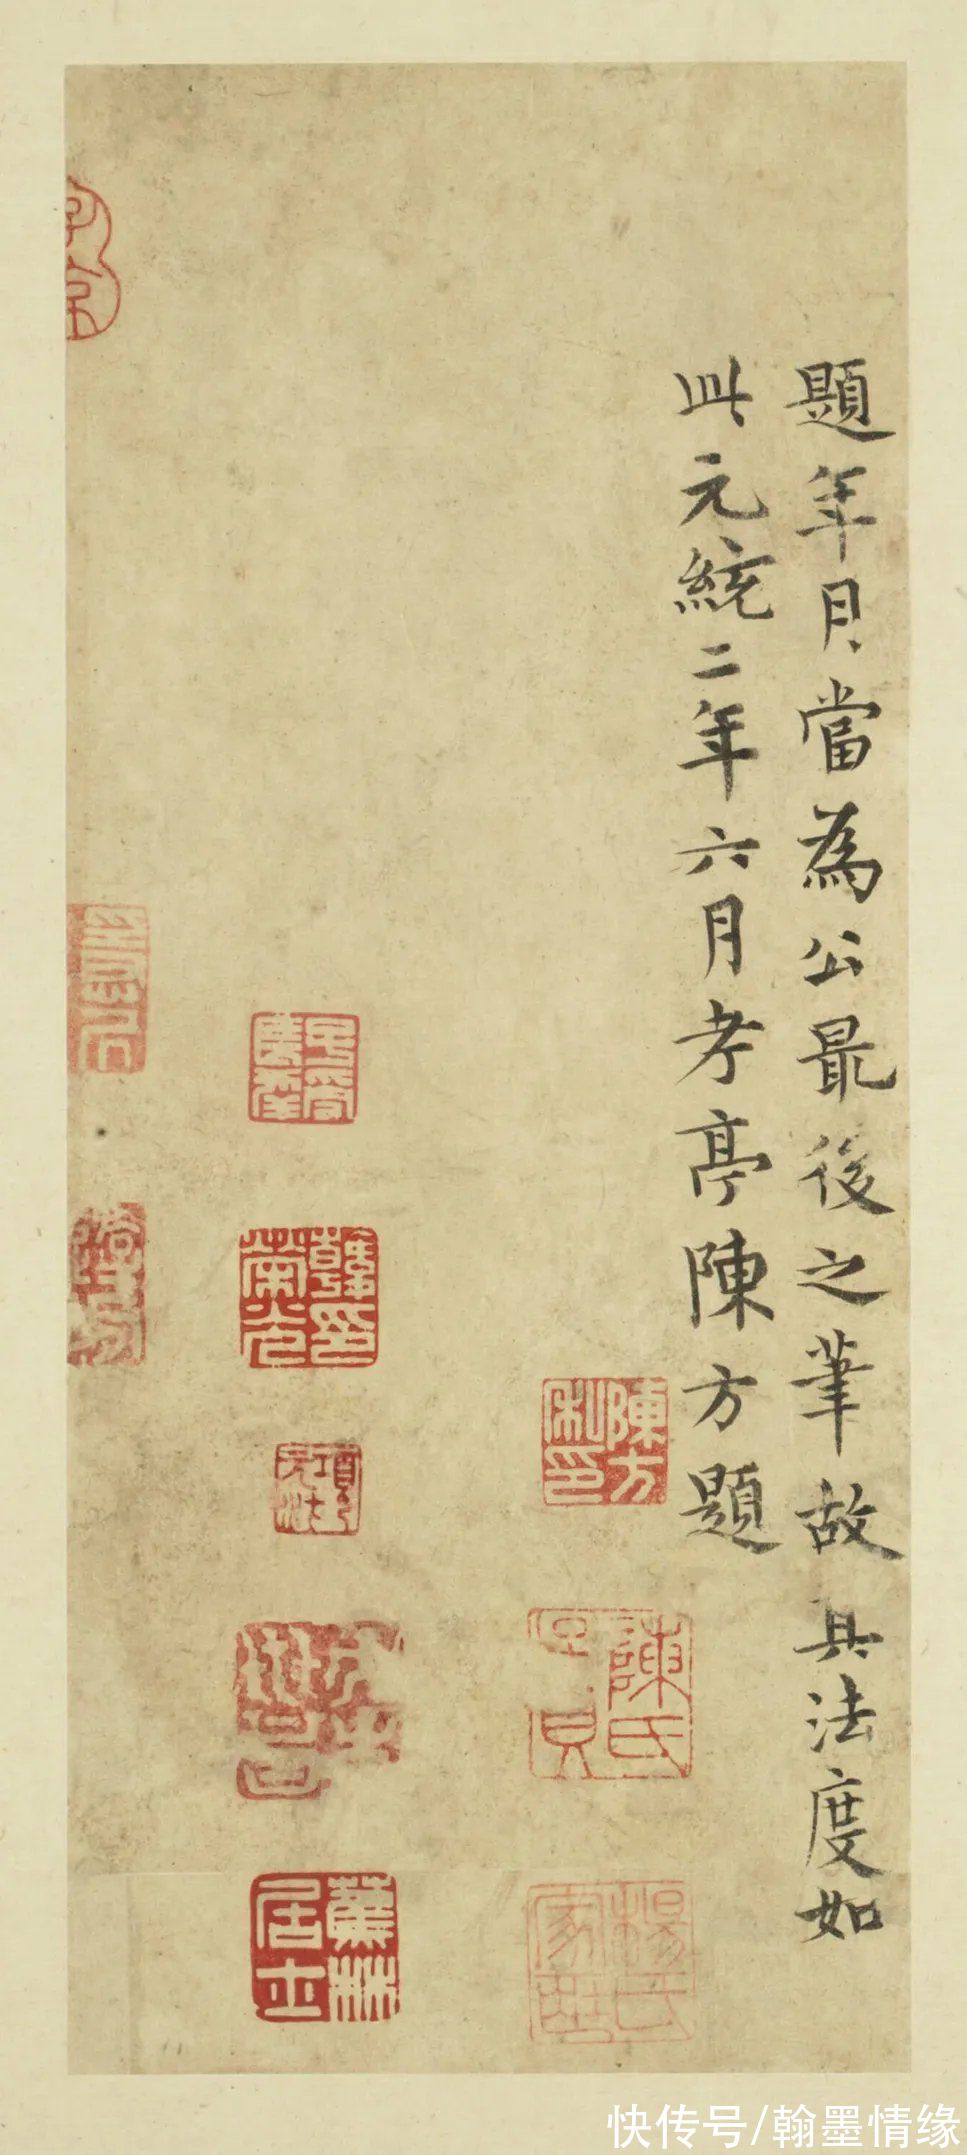 題年月當為公最後之筆故其法度如
此元統二年六月孝亭陳方題
陳方私印
陳氏
韓世能印
蕉林居士
快传号/翰墨情缘